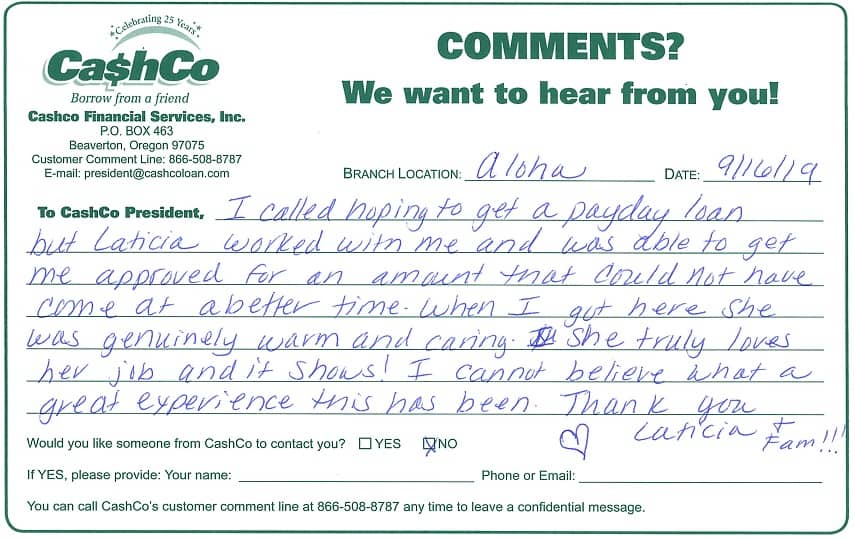 Celebrating 25 Years
Ca$hCo
Borrow from a friend
Cashco Financial Services, Inc.
P.O. BOX 463
Beaverton, Oregon 97075
Customer Comment Line: 866-508-8787
E-mail: president@cashcoloan.com
COMMENTS?
We want to hear from you!
BRANCH LOCATION: Aloha DATE: 9/16/19
To CashCo President, I called hoping to get a payday loan
but Laticia worked with me and was able to get
me approved for an amount that could not have
come at a better time. When I got here she
was genuinely warm and caring. She truly loves
her job and it shows! I cannot believe what a
great experience this has been. Thank you
Laticia + Fam!!!
Would you like someone from CashCo to contact you? YES NO
If YES, please provide: Your name: Phone or Email:
You can call CashCo's customer comment line at 866-508-8787 any time to leave a confidential message.